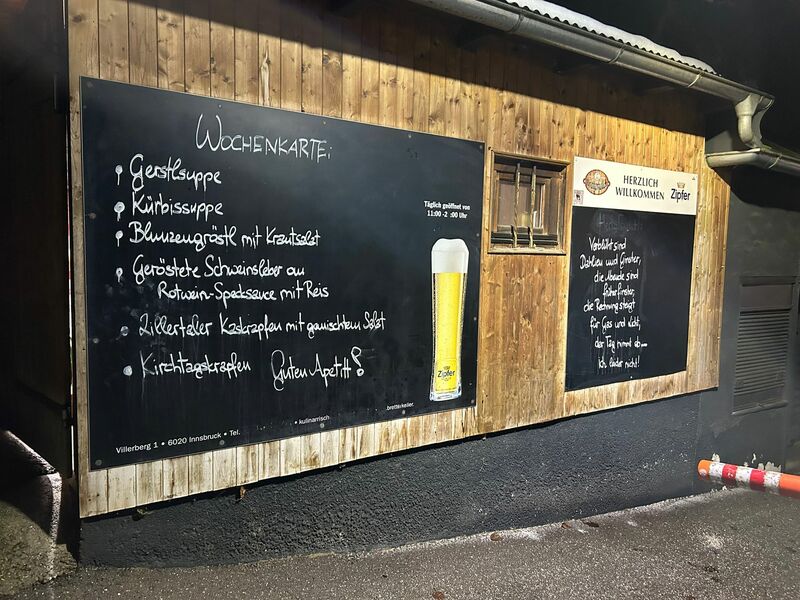 WOCHENKARTE:
Gerstlsuppe
Kürbissuppe
Blunzengröstl mit Krautsalat
Geröstete Schweinsleber an
Rotwein-Specksauce mit Reis
Zillertaler Kaskrapfen mit gemischtem Salat
Kirchtagskrapfen Guten Apetit!
Täglich geöffnet von
11:00-2 :00 Uhr
Zipfer
Villerberg 1 • 6020 Innsbruck • Tel.
• kulinarisch
bretterkeller.
HERZLICH
WILLKOMMEN
Zipfer
Verblüht sind
Dahlien und Ginster,
die Abende sind
früher finster,
die Rechnung steigt
für Gas und Licht,
der Tag nimmt ab....
Ich leider nicht!